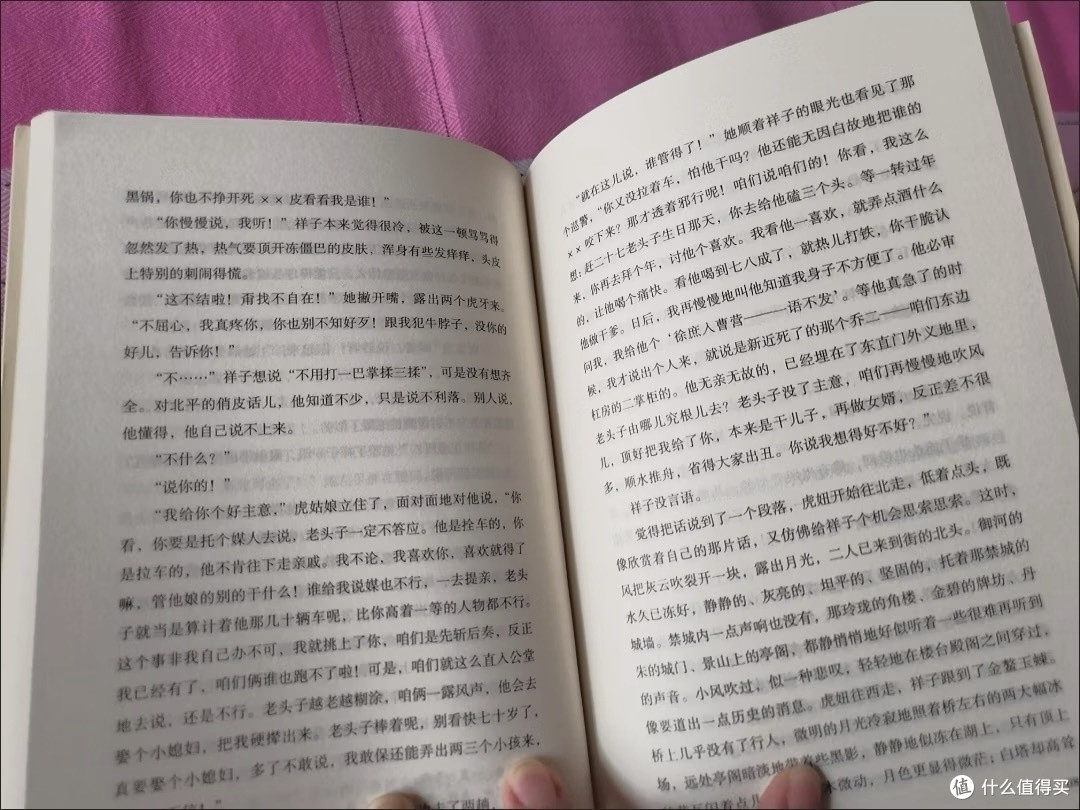 黑锅，你也不挣开死××皮看看我是谁！”
“你慢慢说，我听！”祥子本来觉得很冷，被这一顿骂骂得
忽然发了热，热气要顶开冻僵巴的皮肤，浑身有些发痒痒，头皮
上特别的刺闹得慌。
“这不结啦！甭找不自在！”她撇开嘴，露出两个虎牙来。
“不屈心，我真疼你，你也别不知好歹！跟我犯牛脖子，没你的
好儿，告诉你！”
“不……”祥子想说“不用打一巴掌揉三揉”，可是没有想齐
全。对北平的俏皮话儿，他知道不少，只是说不利落。别人说，
他懂得，他自己说不上来。
“不什么？”
“说你的！”
“我给你个好主意，”虎姑娘立住了，面对面地对他说，“你
看，你要是托个媒人去说，老头子一定不答应。他是拴车的，你
是拉车的，他不肯往下走亲戚。我不论，我喜欢你，喜欢就得了
嘛，管他娘的别的干什么！谁给我说媒也不行，一去提亲，老头
子就当是算计着他那几十辆车呢，比你高着一等的人物都不行。
这个事非我自己办不可，我就挑上了你，咱们是先斩后奏，反正
我已经有了，咱们俩谁也跑不了啦！可是，咱们就这么直入公堂
地去说，还是不行。老头子越老越糊涂，咱俩一露风声，他会去
娶个小媳妇，把我硬撵出来。老头子棒着呢，别看快七十岁了，
真要娶个小媳妇，多了不敢说，我敢保还能弄出两三个小孩来，
走了两趟，
“就在这儿说，谁管得了！”她顺着祥子的眼光也看见了那
个巡警，“你又没拉着车，怕他干吗？他还能无因白故地把谁的
××咬下来？那才透着邪行呢！咱们说咱们的！你看，我这么
想：赶二十七老头子生日那天，你去给他磕三个头。等一转过年
来，你再去拜个年，讨他个喜欢。我看他一喜欢，就弄点酒什么
的，让他喝个痛快。看他喝到七八成了，就热儿打铁，你干脆认
他做干爹。日后，我再慢慢地叫他知道我身子不方便了。他必审
问我，我给他个‘徐庶人曹营———语不发’。等他真急了的时
候，我才说出个人来，就说是新近死了的那个乔二——咱们东边
杠房的二掌柜的。他无亲无故的，已经埋在了东直门外义地里，
老头子由哪儿究根儿去？老头子没了主意，咱们再慢慢地吹风
儿，顶好把我给了你，本来是干儿子，再做女婿，反正差不很
多，顺水推舟，省得大家出丑。你说我想得好不好？”
祥子没言语。
觉得把话说到了一个段落，虎妞开始往北走，低着点头，既
像欣赏着自己的那片话，又仿佛给祥子个机会思索思索。这时，
风把灰云吹裂开一块，露出月光，二人已来到街的北头。御河的
水久已冻好，静静的、灰亮的、坦平的、坚固的，托着那禁城的
城墙。禁城内一点声响也没有，那玲珑的角楼、金碧的牌坊、丹
朱的城门、景山上的亭阁，都静悄悄地好似听着一些很难再听到
的声音。小风吹过，似一种悲叹，轻轻地在楼台殿阁之间穿过，
像要道出一点历史的消息。虎妞往西走，祥子跟到了金鳌玉𬟽。
桥上几乎没有了行人，微明的月光冷寂地照着桥左右的两大幅冰
场，远处亭阁暗淡地带着些黑影，静静地似冻在湖上，只有顶上
微动，月色更显得微茫；白塔却高耸
值 什么值得买